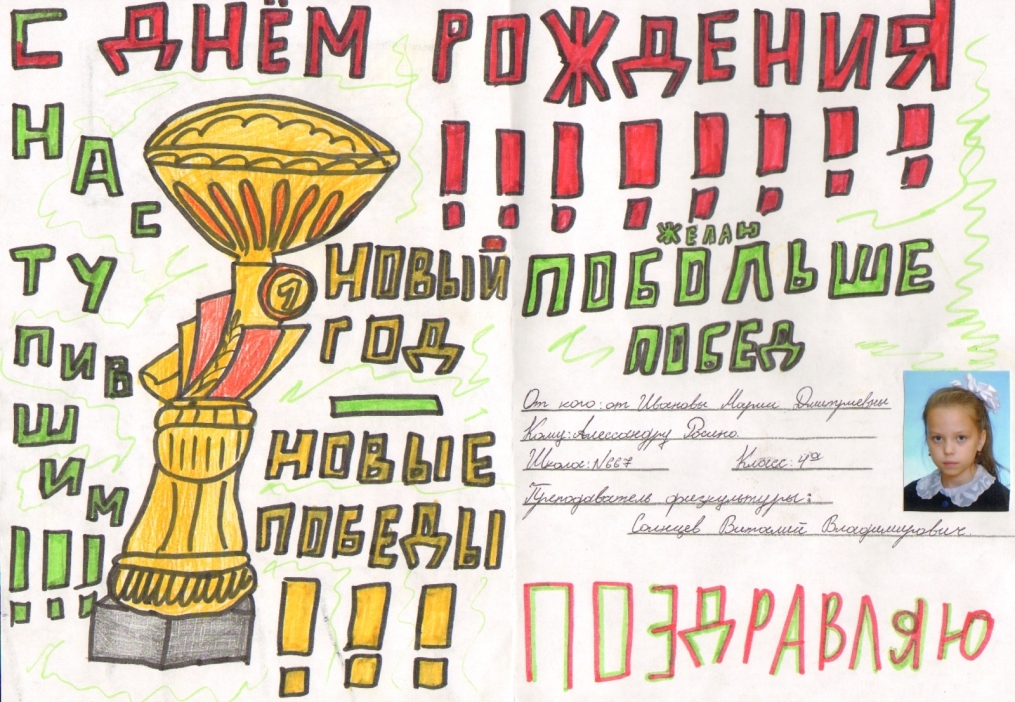 С ДНЁМ РОЖДЕНИЯ
!!!!!!!
НАСТУПИВШИМ
!!!
1
НОВЫЙ
ГОД
—
НОВЫЕ
ПОБЕДЫ
!!!
ЖЕЛАЮ
ПОБОЛЬШЕ
ПОБЕД
От кого: от Ивановы Марии Дмитриевны
Кому: Алессандру Росино.
Школа: №667 Класс: 4а
Преподаватель физкультуры:
Солнцев Виталий Владимирович.
ПОЗДРАВЛЯЮ